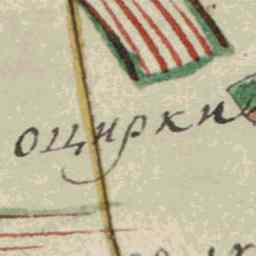 оцирки